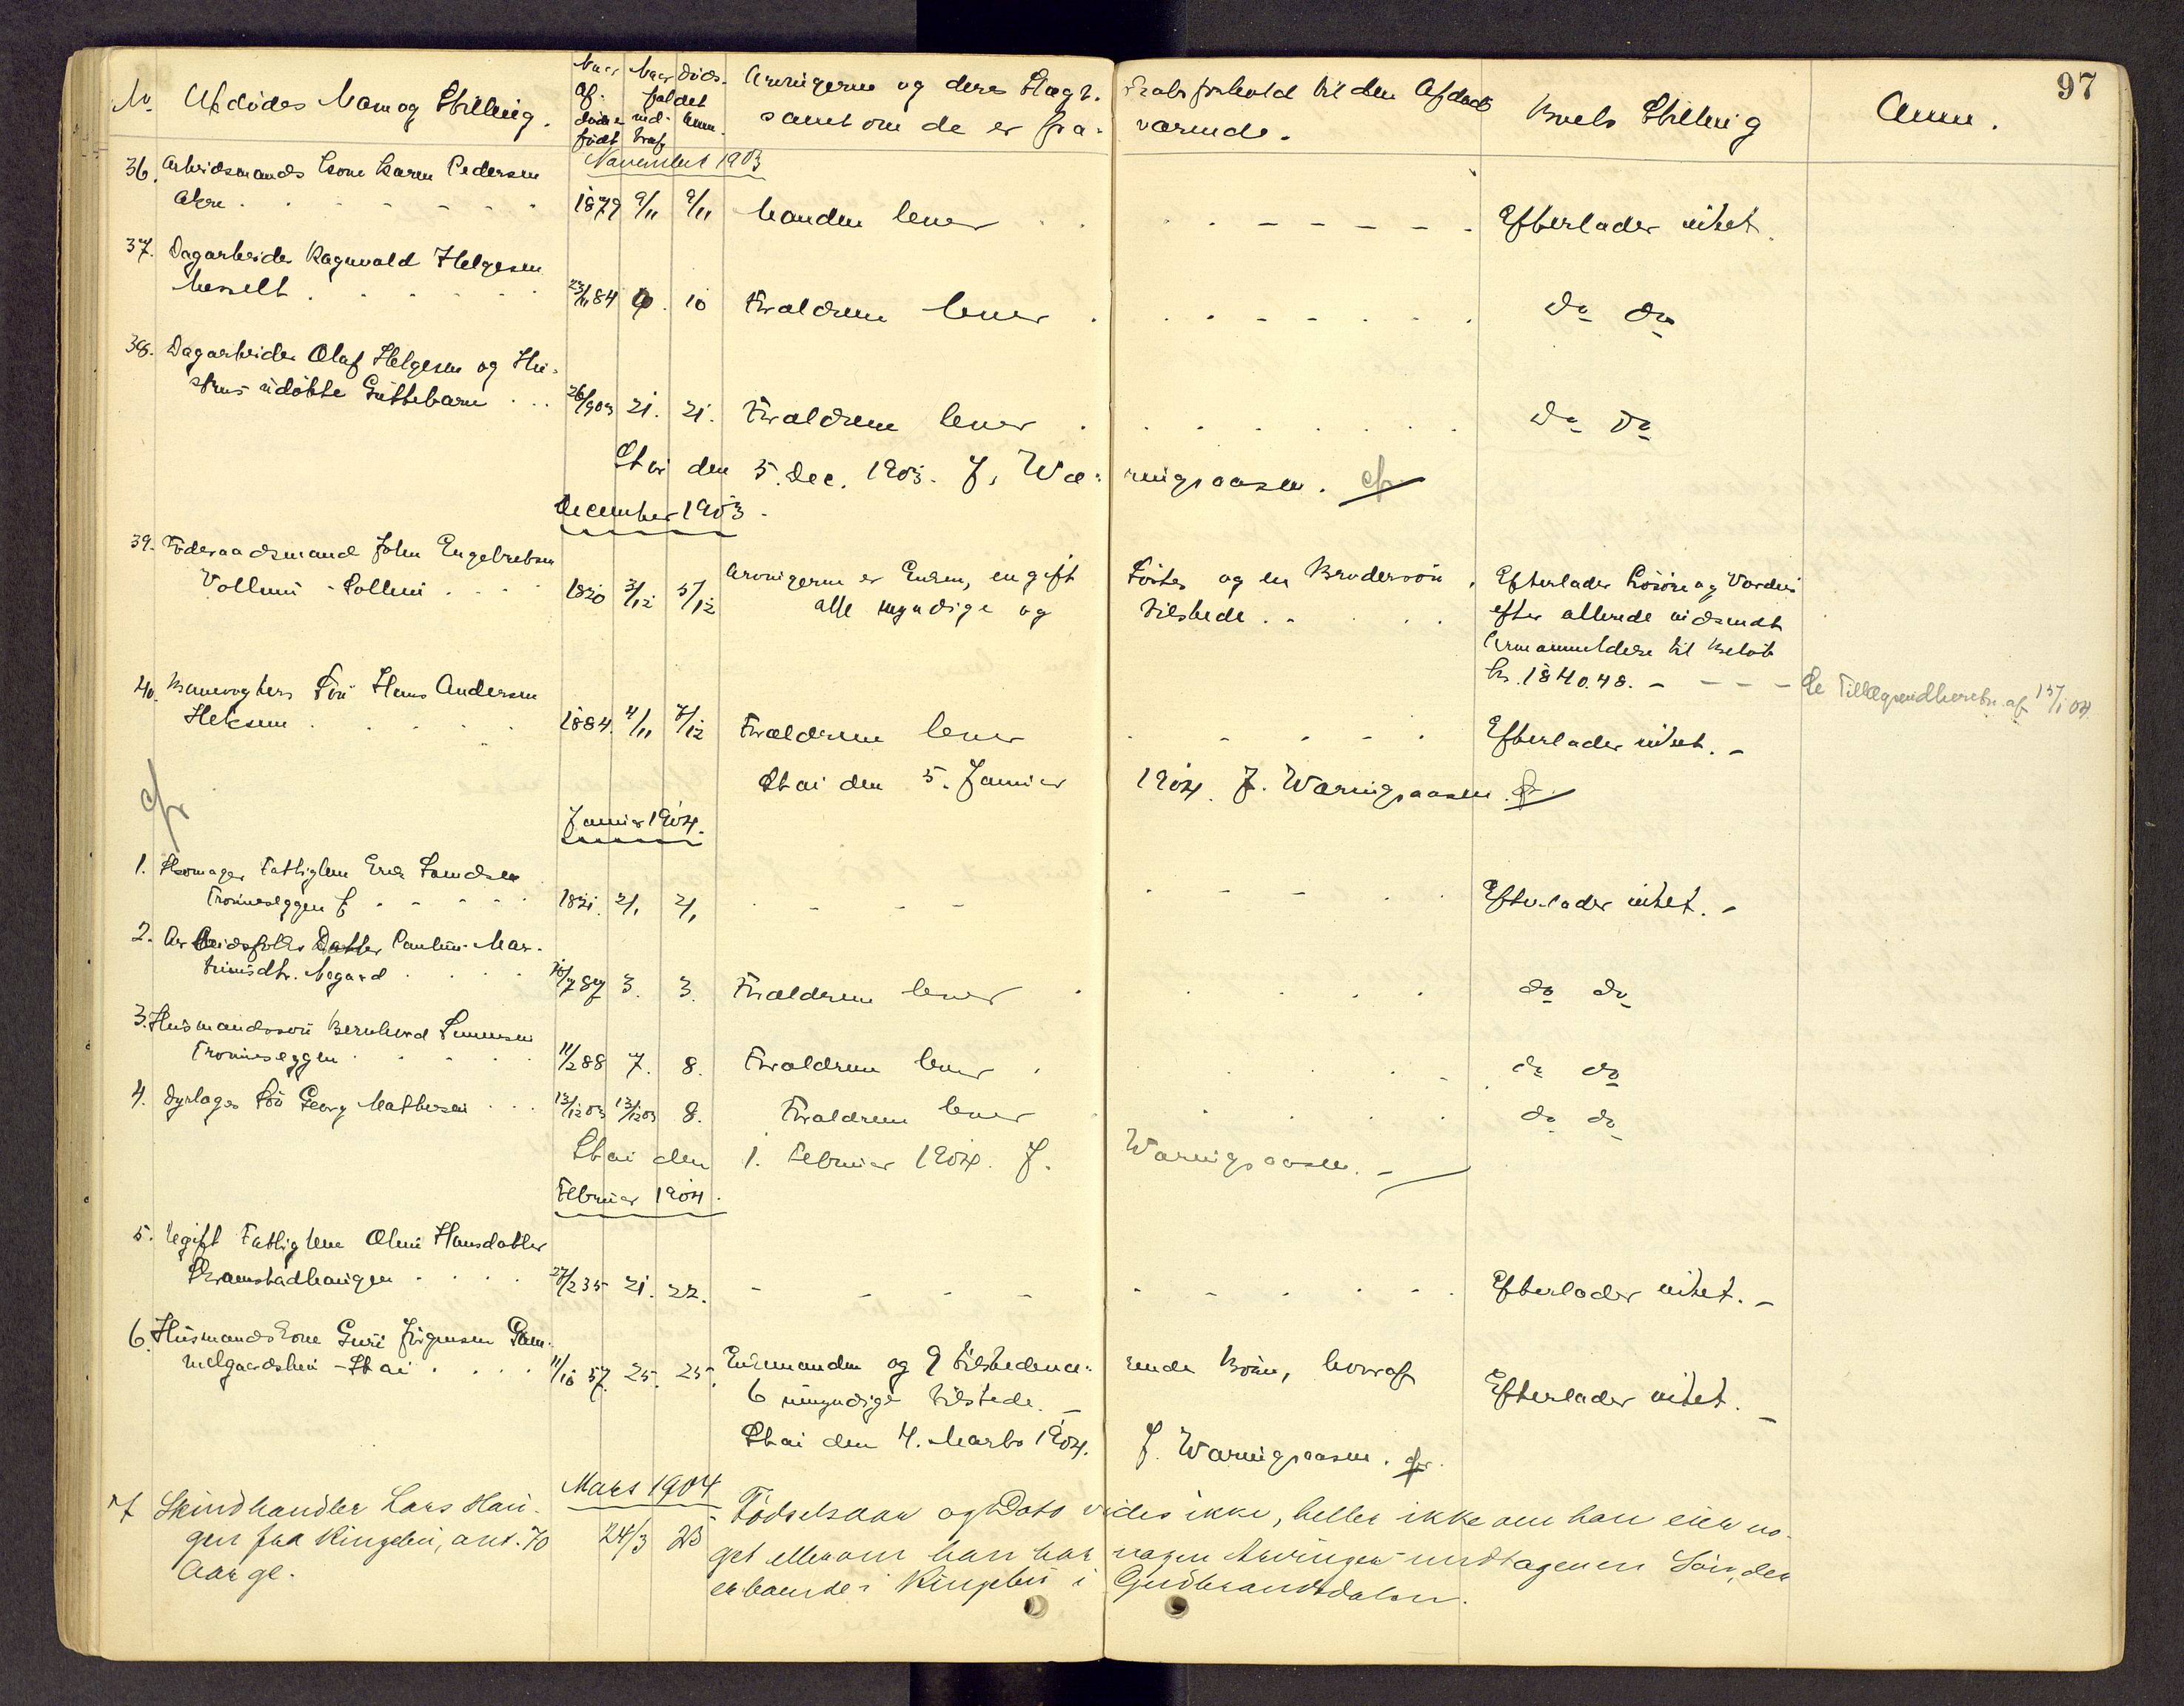 97
No Afdødes Navn og Stilling.
Naar afdøde er født
Naar dødsfaldet indtraf
Anm.
Arvingerne og deres Slægtskabsforhold til den Afdøde
samt om de er fraværende.
Boets Stilling
Anm.
November 1903
36. Arbeidsmands Kone Karen Pedersen
Akre . . . 1879 9/11 9/11 Manden lever . . Efterlader intet.
37. Dagarbeider Ragnvald Helgesen
Messelt . . 23/11 84 9. 10 Forældrene lever . . do do
38. Dagarbeider Olaf Helgesen og Hu-
strus udøbte Guttebarn . . . 26/ 903 21. 21. Forældrene lever . . do do
Stai den 5. Dec. 1903. J. Wæ- ringsaasen. cfr
December 1903.
39. Føderaadsmand John Engebretsen
Vollum - Sollien . . . 1820 3/12 5/12 Arvingerne er Enken, en gift Søster og en Brodersøn, Efterlader Løsøre og Værdi
alle myndige og tilstede . . efter allerede indsendt
Armanmeldere til Beløb
Kr. 1840.48. - - - - Se Tillægsindberetn. af 15/1 04.
40. Banevogters Søn Hans Andersen
Heksem . . 1884. 4/11 7/12 Forældrene lever . . Efterlader intet. -
Stai den 5. Januar 1904. J. Wæringsaasen. cfr
cfr
Januar 1904.
1. Skomager Fattiglem Erik Tomdsen
Trønneseggen f . . 1821. 2/1 2/1 . - - - Efterlader intet. -
2. Arbeidsfolks Datter Pauline Mar-
tinusdtr. Negard . . 10/7 87 3. 3. Forældrene lever . . do do
3. Husmandssøn Bernhard Simensen
Trønneseggen . . 11/2 88 7. 8. Forældrene lever . . do do
4. Dyrlæges Søn Georg Mathesen . . . 13/12 03 13/12 03 8. Forældrene lever . . do do
Stai den 1. Februar 1904. J. Wæringsaasen. -
Februar 1904.
5. Ugift Fattiglem Oline Hansdatter
Kramstadhaugen . . . . 27/2 35 21. 22. - - - - Efterlader intet. -
6. Husmandskone Guri Jørgensen Gam-
melgaardshei - Stai . . . . 11/10 57. 25. 25. Enkemanden og 9 tilstedevæ- rende Børn, hvoraf
6 umyndige tilstede. - Efterlader intet. -
Stai den 4. Marts 1904. J. Wæringsaasen. cfr.
Mars 1904
7 Skindhandler Lars Hau- Fødselsaar og Dato vides ikke, heller ikke om han eier no-
gen fra Ringebu, ant. 70 24/3 25 get eller om han har nogen Arvinger undtagen en Søn, der
Aar gl. er boende i Ringebu i Gudbrandsdalen.